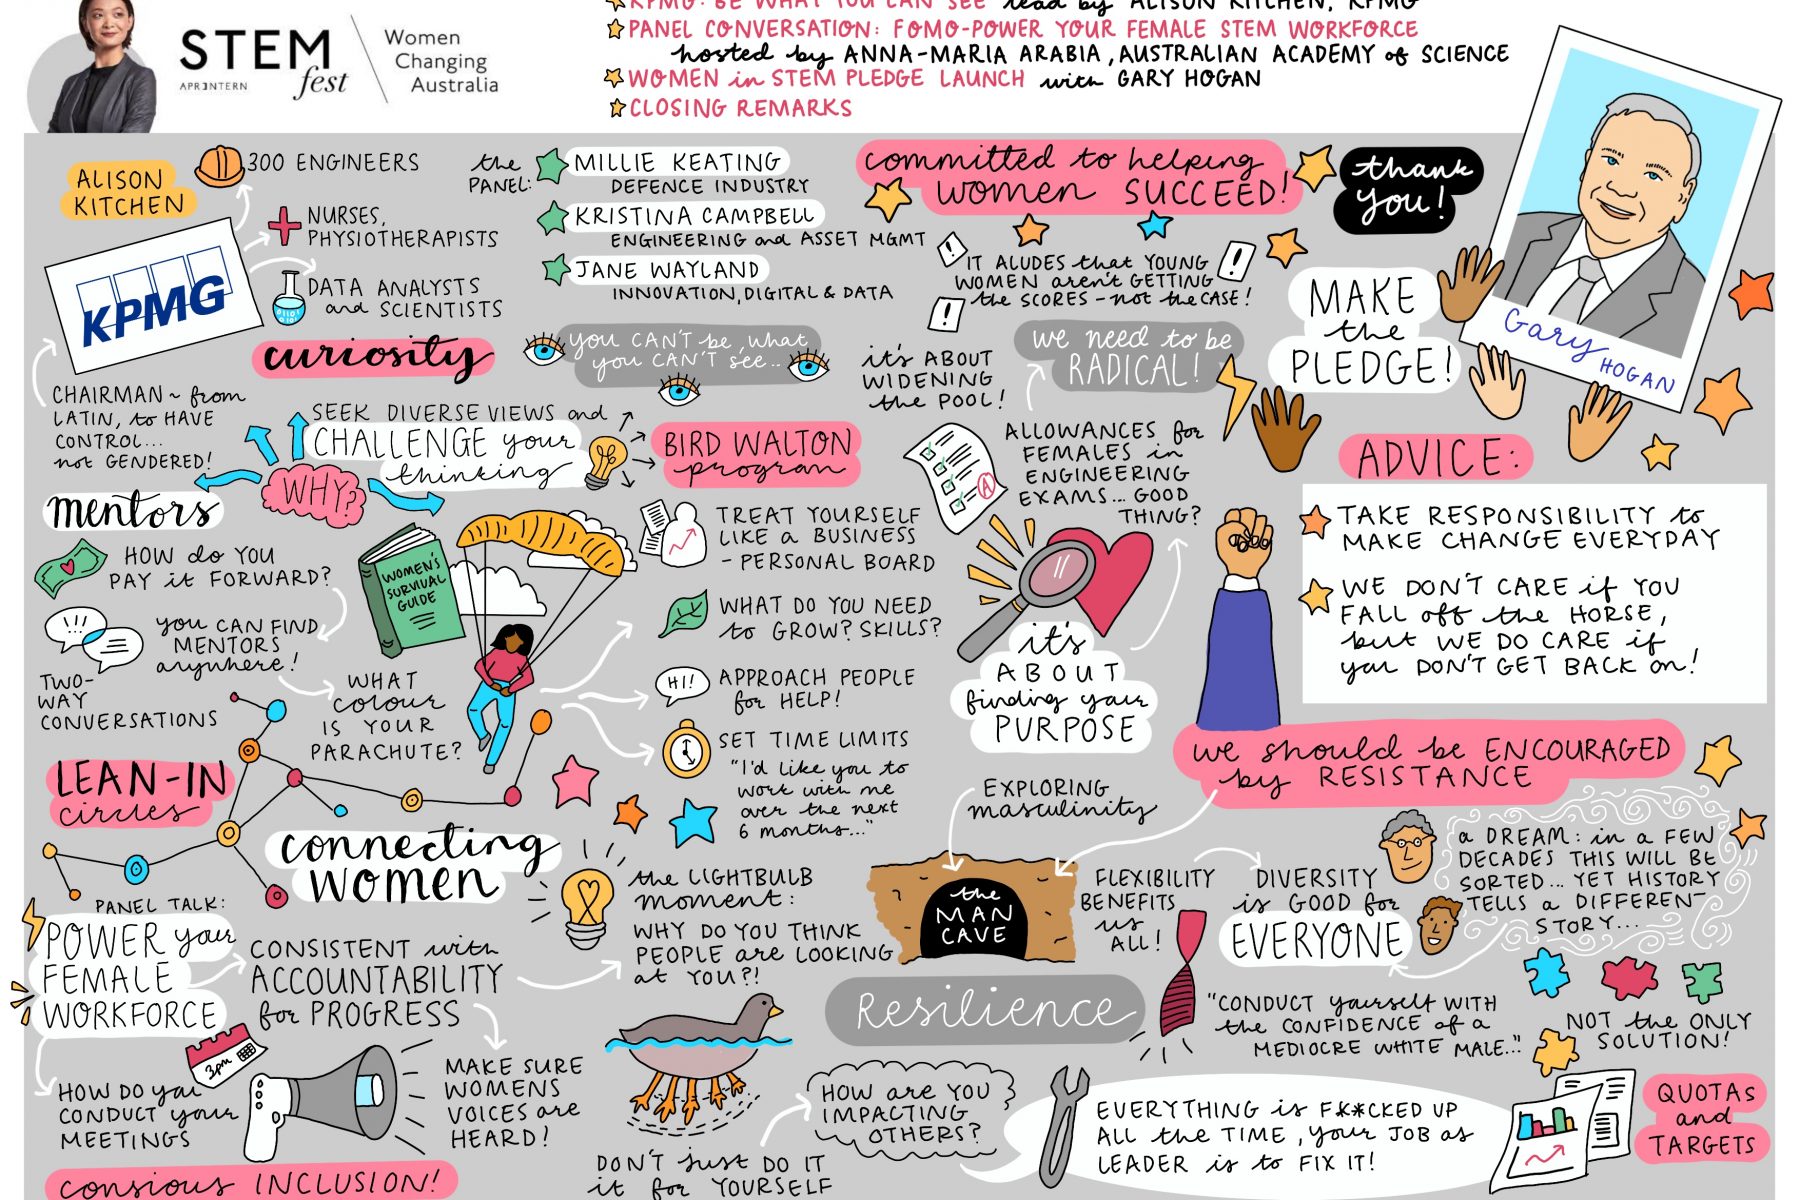 STEM
APR3NTERN
fest
Women
Changing
Australia
KPMG: BE WHAT YOU CAN SEE lead by ALISON KITCHEN, KPMG
PANEL CONVERSATION: FOMO-POWER YOUR FEMALE STEM WORKFORCE
hosted by ANNA-MARIA ARABIA, AUSTRALIAN ACADEMY of SCIENCE
WOMEN in STEM PLEDGE LAUNCH with GARY HOGAN
CLOSING REMARKS
ALISON
KITCHEN
300 ENGINEERS
NURSES,
PHYSIOTHERAPISTS
DATA ANALYSTS
and SCIENTISTS
KPMG
CHAIRMAN ~ from
LATIN, to HAVE
CONTROL...
not GENDERED!
the
PANEL:
MILLIE KEATING
DEFENCE INDUSTRY
KRISTINA CAMPBELL
ENGINEERING and ASSET MGMT
JANE WAYLAND
INNOVATION, DIGITAL & DATA
curiosity
you CAN'T be, what
you CAN'T see...
SEEK DIVERSE VIEWS and
CHALLENGE your
thinking
WHY?
BIRD WALTON
program
TREAT YOURSELF
LIKE a BUSINESS
- PERSONAL BOARD
WHAT DO YOU NEED
to GROW? SKILLS?
HI!
APPROACH PEOPLE
for HELP!
SET TIME LIMITS
"I'd like you to
work with me
over the next
6 months..."
mentors
HOW do YOU
PAY it FORWARD?
!!!
you CAN FIND
MENTORS
anywhere!
TWO-
WAY
CONVERSATIONS
WOMEN'S
SURVIVAL
GUIDE
WHAT
colour
IS YOUR
PARACHUTE?
LEAN-IN
circles
connecting
WOMEN
committed to helping
women SUCCEED!
thank
you!
IT ALUDES that YOUNG
WOMEN aren't GETTING
the SCORES - not the CASE!
!
!
!
it's ABOUT
WIDENING
the POOL!
we need to be
RADICAL!
ALLOWANCES for
FEMALES in
ENGINEERING
EXAMS... GOOD
THING?
A
it's
ABOUT
finding your
PURPOSE
MAKE
the
PLEDGE!
Gary HOGAN
ADVICE:
TAKE RESPONSIBILITY to
MAKE CHANGE EVERYDAY
WE DON'T CARE if YOU
FALL off the HORSE,
but WE DO CARE if
you DON'T GET BACK on!
we should be ENCOURAGED
by RESISTANCE
EXPLORING
masculinity
the
MAN
CAVE
FLEXIBILITY
BENEFITS
us
ALL!
DIVERSITY
is GOOD for
EVERYONE
a DREAM: in a FEW
DECADES THIS WILL BE
SORTED... YET HISTORY
TELLS a DIFFERENT
STORY...
PANEL TALK:
POWER your
FEMALE
WORKFORCE
CONSISTENT with
ACCOUNTABILITY
for PROGRESS
the LIGHTBULB
moment:
WHY DO YOU THINK
PEOPLE are LOOKING
at YOU?!
Resilience
"CONDUCT yourself WITH
the CONFIDENCE of a
MEDIOCRE WHITE MALE..."
NOT the ONLY
SOLUTION!
3pm
HOW DO you
CONDUCT your
MEETINGS
MAKE SURE
WOMENS
VOICES are
HEARD!
consious INCLUSION!
DON'T just DO IT
it for YOURSELF
HOW are YOU
IMPACTING
OTHERS?
EVERYTHING is F&*CKED UP
ALL the TIME, your JOB as
LEADER is to FIX IT!
QUOTAS
and
TARGETS